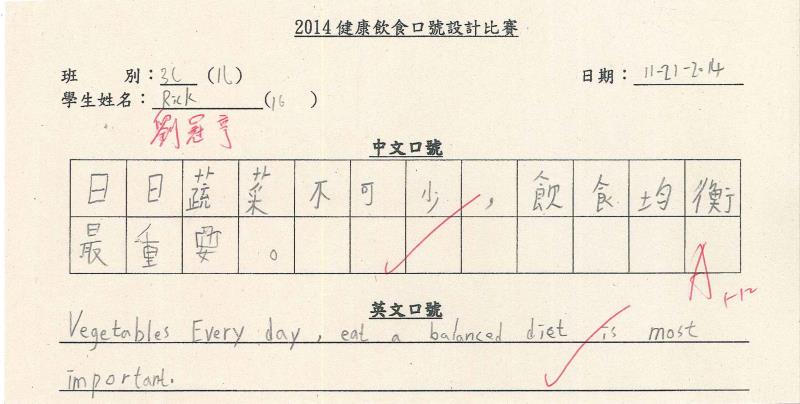 2014健康飲食口號設計比賽
班 別：3C (16) 日期：11-21-2014
學生姓名：Rick (16 )
劉冠亨
中文口號
日日蔬菜不可少，飲食均衡
最重要。
A
英文口號
Vegetables Every day, eat a balanced diet is most
important.